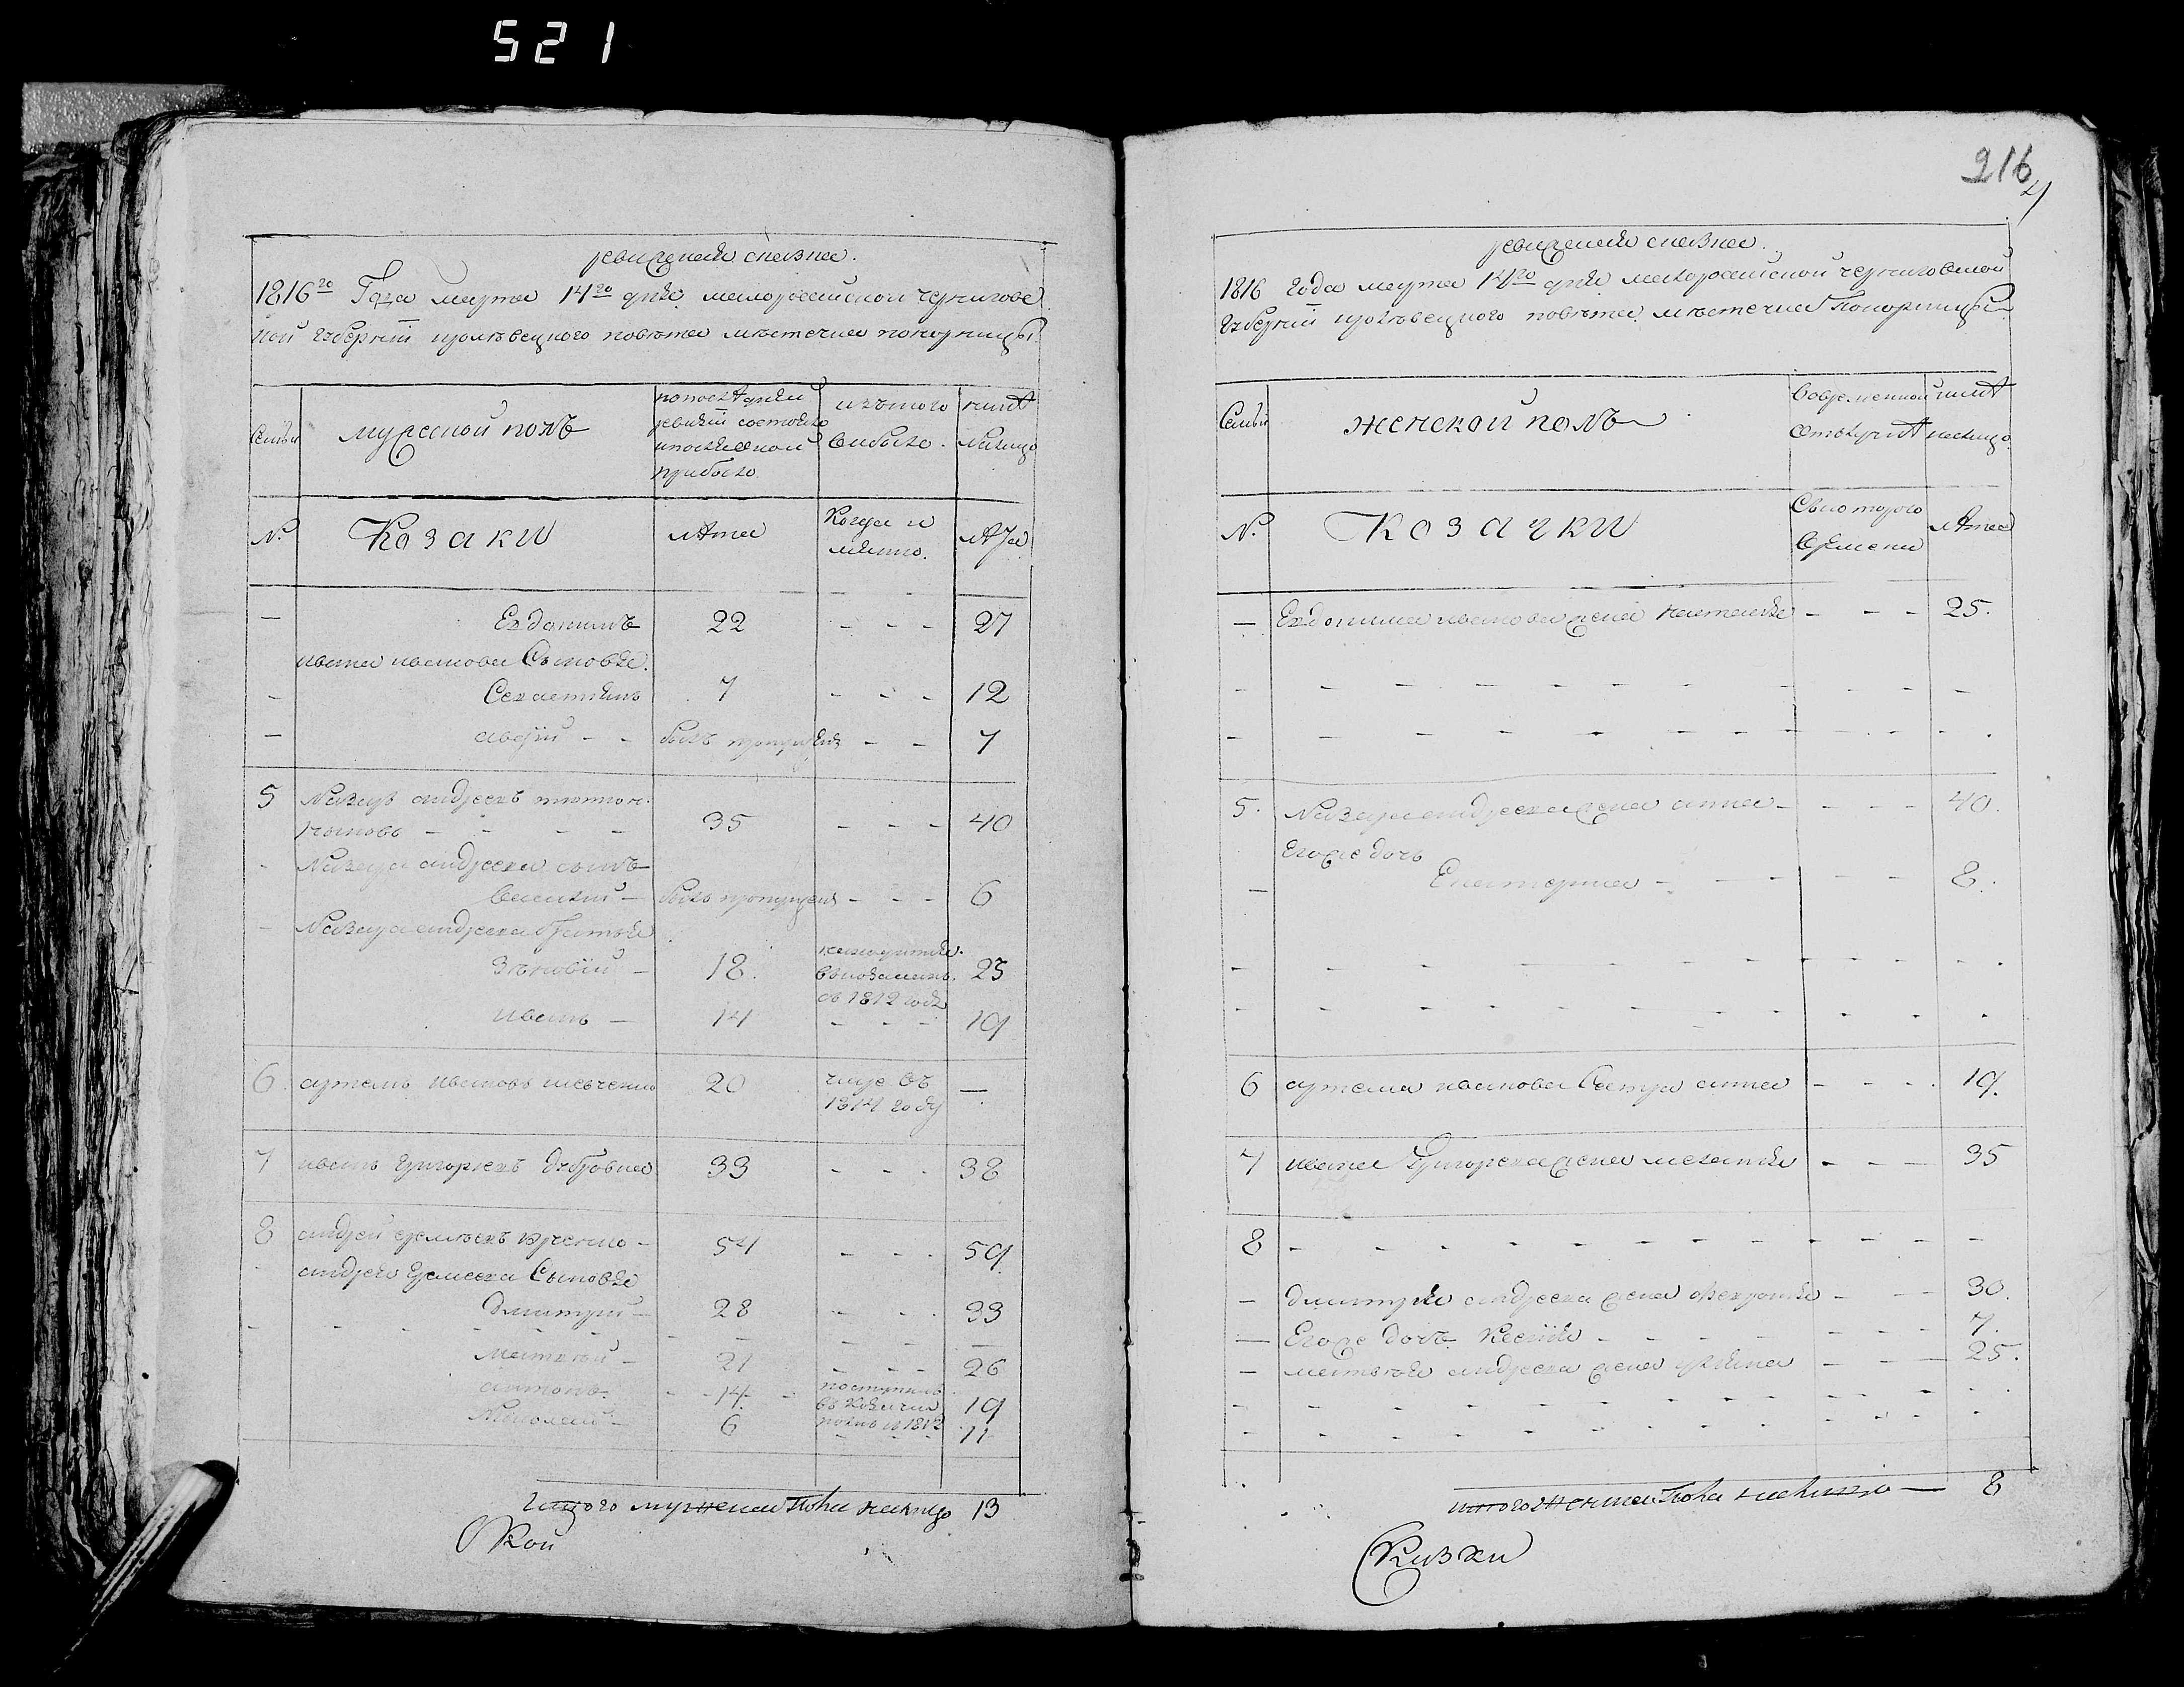 521
ревизская сказка.
1816го Года марта 14го дня малороссийской черниговс
кой губернїи кролевецкого повета местечка понорницы
Семьи мужеской полъ
по последней
ревизїи состояло
и после оной
прибыло.
изъ того
выбыло.
ныне
налицо
№. Козаки лета Когда и
имянно. лета
— Евдокимъ 22 - - - 27
ивана иванова Сыновья.
- Севастиянъ 7 - - - 12
- авдїй - - былъ пропущенъ - - 7
5 Назаръ андреевъ
35 - - - 40
- Назара андреева сынъ
василий - былъ пропущенъ - - - 6
- Назара андреева братья
Зеновїй - 18.
въ 1812 годе 23
иванъ - 14 - - - 19
6. артемъ ивановъ шевченко 20 1814 году —
7 иванъ григориевъ дубровка 33 - - - 38
8 андрей 54 - - - 59
андрея Сыновья
дмитрий - 28 - - - 33
матвей - 21 - - - 26
антонъ - 14 - поступилъ
въ козачий
полкъ в 1812 19
6 11
Итого мужеска пола налицо 13
Кой
216
4
ревизская сказка.
1816 года марта 14го дня малороссийской черниговской
губернїи кролевецкого повета местечка Понорницы
Семьи женской полъ
Во временной
отлучке
ныне
налицо.
№. Козачки
С которого
времени
лета
— Евдокима иванова жена наталья - - - 25.
5. Назара андреева жена анна - - - - 40.
Егоже дочь
— Екатерина - - - - 8.
6 артема иванова Сестра анна - - - - 19.
7 ивана Григорьева жена меланья - - - 35
8 - - - - - - - - - -
— дмитрия андреева жена - - - 30.
— Егоже дочь Ксения - - - - 7.
— матвея андреева жена ульяна - - - 25.
итого женска пола налицо — 8
Сказки